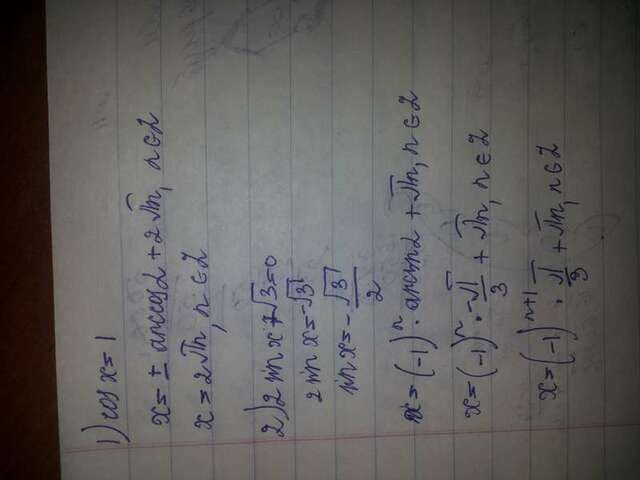 1) cos x = 1
x = ± arccos 2 + 2πn, n ∈ Z
x = 2πn, n ∈ Z
2) 2 sin x + √3 = 0
2 sin x = -√3
sin x = - √3/2
x = (-1)ⁿ · arcsin 2 + πn, n ∈ Z
x = (-1)ⁿ · -π/3 + πn, n ∈ Z
x = (-1)ⁿ⁺¹ · π/3 + πn, n ∈ Z